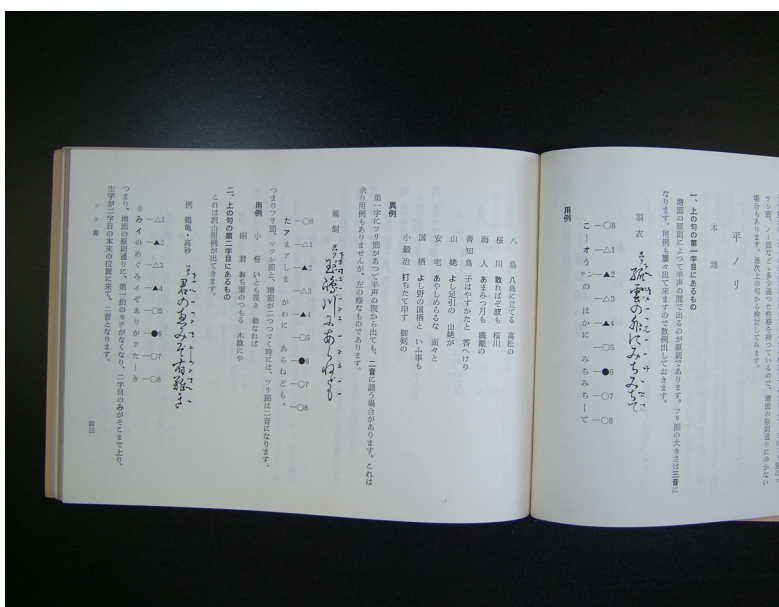 ワシ節、ノー節など〻多少違つた性格を持つているので、増節の原則通りにゆかない
場合もあります。逐次上の句から検討してみます。
平ノリ
本地
一、上の句の第一字目にあるもの
増節の原則によつて半声の間で出るのが原則であります。フリ節の大きさは三音に
なります。用例も屢々出て来ますので数例出しておきます。
羽衣 孤雲の外にみちみちて
○8 △1 ▲2 △3 ▲4 ○5 ●6 ○7 ○8
こーオうンの ほかに みちみちーて
用例
八島 八島に立てる 高松の
桜川 散ればぞ波も 桜川
海人 あまみつ月も 満潮の
善知鳥 子はやすかたと 答へけり
山姥 よし足引の 山姥が
安宅 あやしめらるな 面々と
国栖 よし野の国栖と いふ事も
小鍛治 打ちたて申す 御剣の
異例
第一字にフリ節があつて半声の間から出ても、二音に謡う場合があります。これは
余り用例もありませんが、左の様なものであります。
鵜飼 玉嶋川にあらねども
○8 △1 ▲2 △3 ▲4 ○5 ●6 ○7 ○8
たアまアしま がわに あらねども。
つまりフリ節、マワシ節と、増節が二つつゞく時には、フリ節は二音になります。
用例
小督 いとも畏き 勅なれば
鉢君 おち葉のつもる 木陰にや
二、上の句の第二字目にあるもの
これは沢山用例が出てきます。
例 鶴亀・高砂 君の恵みぞ有難き
△1 ▲2 △3 ▲4 ○5 ●6 ○7 ○8
きみイのめぐみイぞありがアたーき
つまり、増節の原則通りに、第一拍のモチがなくなり、二字目のみがそこまで上り、
生字が二字目の本来の位置に来て、二音となります。
フリ節
四三